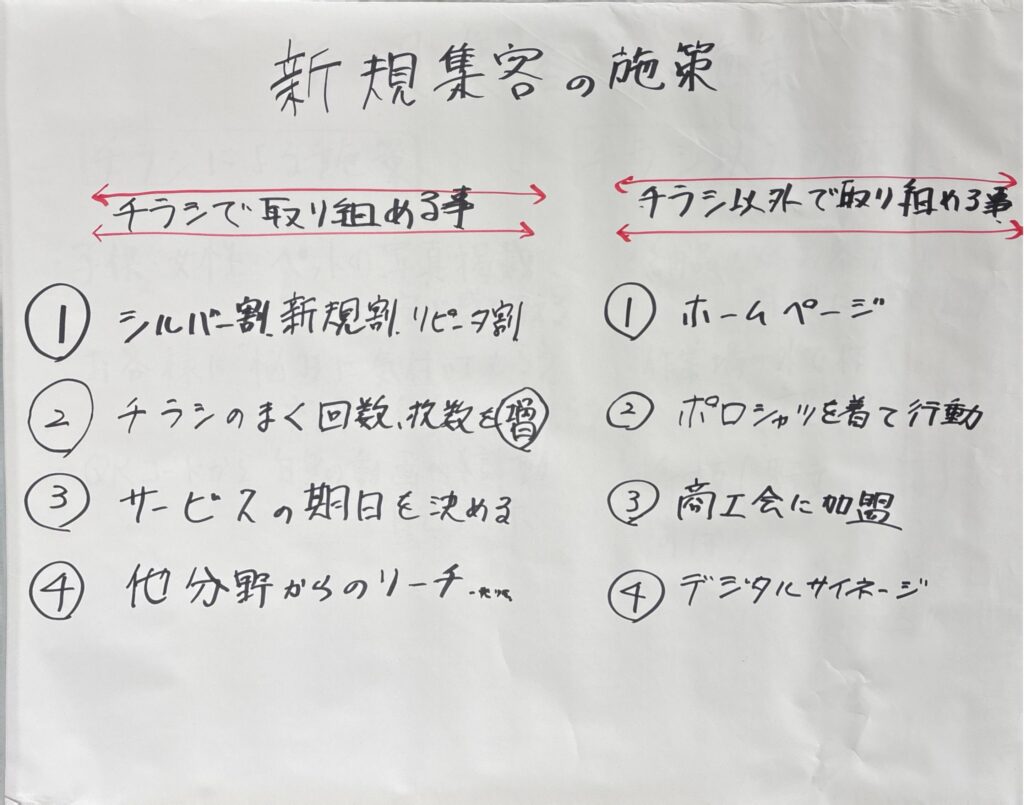 新規集客の施策
チラシで取り組める事
① シルバー割、新規割、リピータ割
② チラシのまく回数、枚数を増
③ サービスの期日を決める
④ 他分野からのリーチ
チラシ以外で取り組める事
① ホームページ
② ポロシャツを着て行動
③ 商工会に加盟
④ デジタルサイネージ